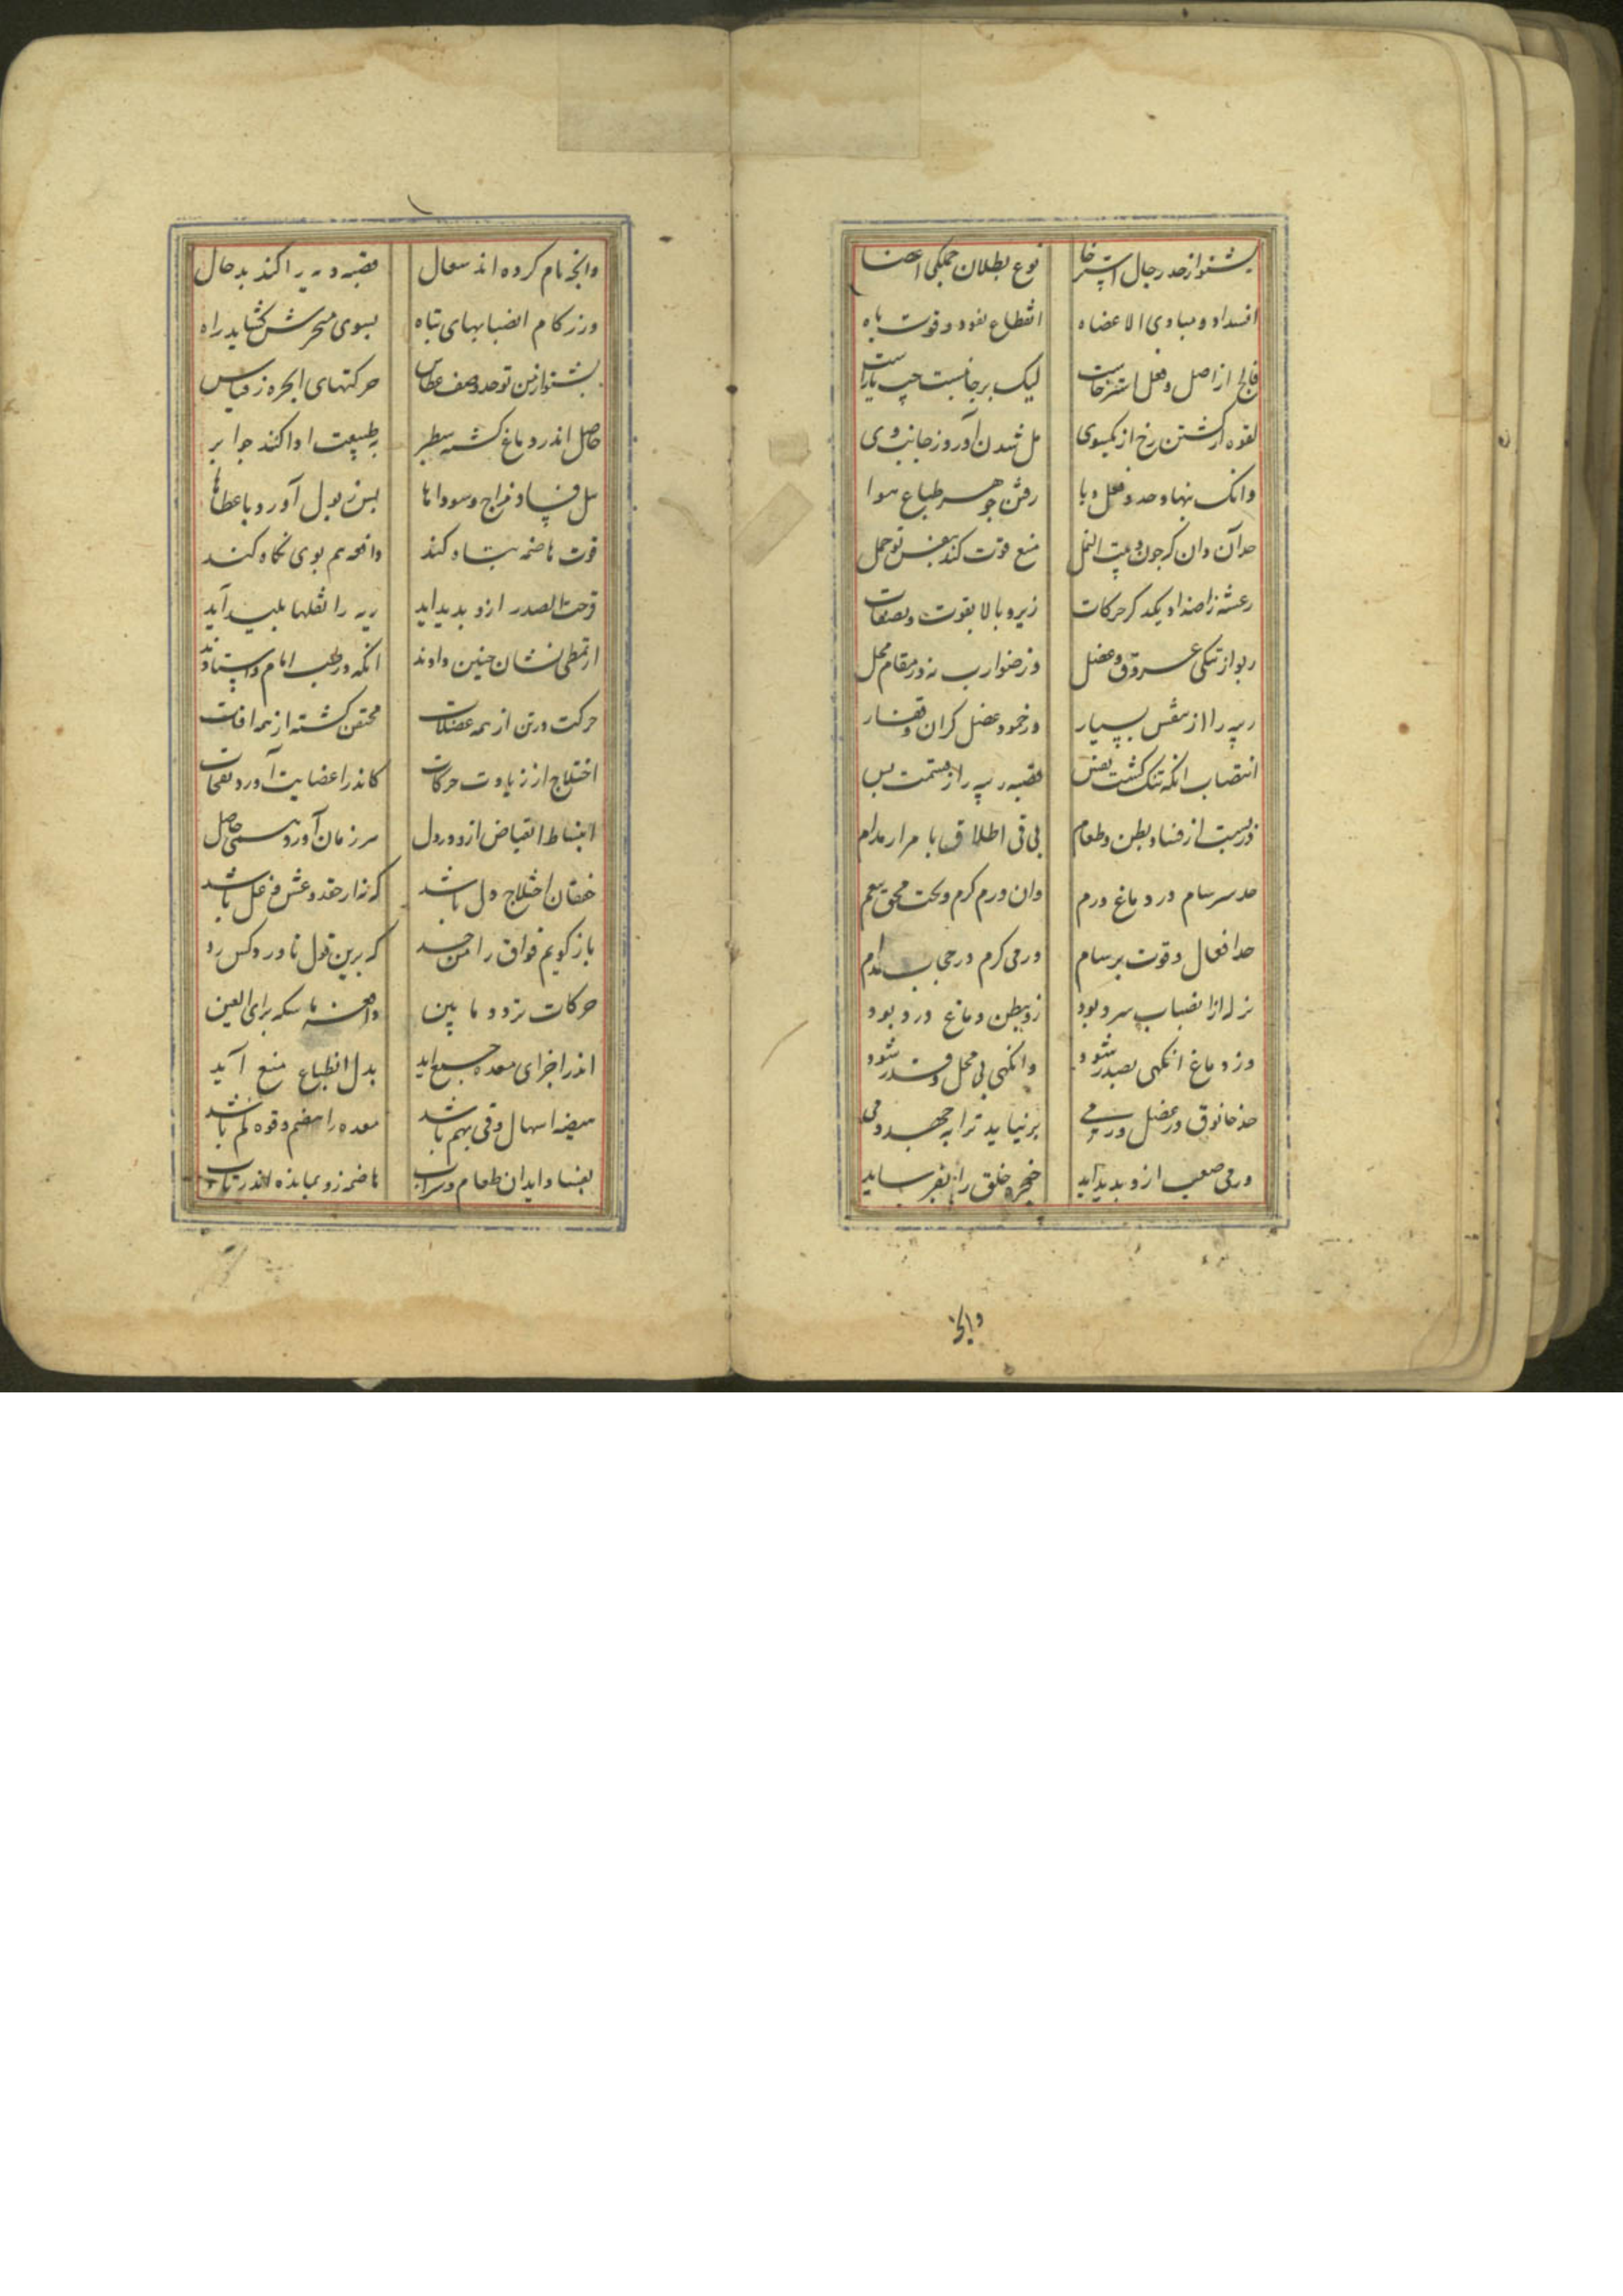 بشنو از حد رجال استرخا نوع بطلان جملگی اعضا
انسداد و مبادی الاعضاء انقطاع نفود و قوت باه
فالج از اصل و فعل استرخاست لیک بر جانبست چپ یا راست
لقوه از کشتن رخ از یکسوی مل شدن آورد ز جانب وی
وانک نهاد حد و فعل وبا رفتن جوهر طباع هوا
حد آن دان که چون دبیت النمل منع قوت کند بنفس تو حمل
رعشه ز اضداد یکدکر حرکات زیر و بالا بقوت و بصفات
ربو از تنکی عروق و عضل وز ضوارب نه در مقام محل
ریه را از نفس بسیار وز خمود عضل کران و فسار
انتصاب انکه تنک کشت نفس قصبه ریه را ز قسمت بس
ذربست از فساد بطن و طعام بی قی اطلاق با مرار مدام
حد سرسام در دماغ ورم وان ورم کرم و تحت محق بعم
حد افعال و قوت برسام ورمی کرم در حجاب مدام
نزله از انصباب سرد بود زو ببطن دماغ درد بود
وز دماغ انکهی بصدر شود وانکهی بی محل و قدر شود
حد خانوق در عضل ورمی برنیاید ترا بجهد دمی
ورمی صعب ازو بدید آید حنجره خلق را بفرساید
وانخ
وانخ نام کرده اند سعال قصبه و ریه را کند بدحال
وز زکام انصبابهای تباه بسوی منخرش کشاید راه
بشنو از من تو حد وصف عطاس حرکتهای ابخره ز قیاس
حاصل اندر دماغ کشته سطبر به طبیعت ادا کند جوابر
سل فساد مزاج و سوداها بس ز بول آورد باعطاها
قوت هاضمه تباه کند دافعه هم بوی نکاه کند
قرحت الصدر ازو بدید اید ریه را ثقلها بلید آید
از تمطی نشان چنین دادند انکه در طب امام و استادند
حرکت در تن از همه عضلات محتقن کشته از همه افات
اختلاج از زیادت حرکات کاندر اعضایت آورد نفحات
انبساط انقباض ازو در دل سر زمان آورد همی حاصل
خفقان اختلاج دل باشد که نه از حقد و غش و غل باشد
باز کویم فواق را من حد که برین قول ناورد کس رد
حرکات تردد ما بین دافعه ماسکه برای العین
اندر اجزای معده جمع اید بدل انطباع منع آید
هیضه اسهال و قی بهم باشد معده را هضم و قوه کم باشد
بفساد ابدان طعام و شراب هاضمه زو بمانده اندر تاب